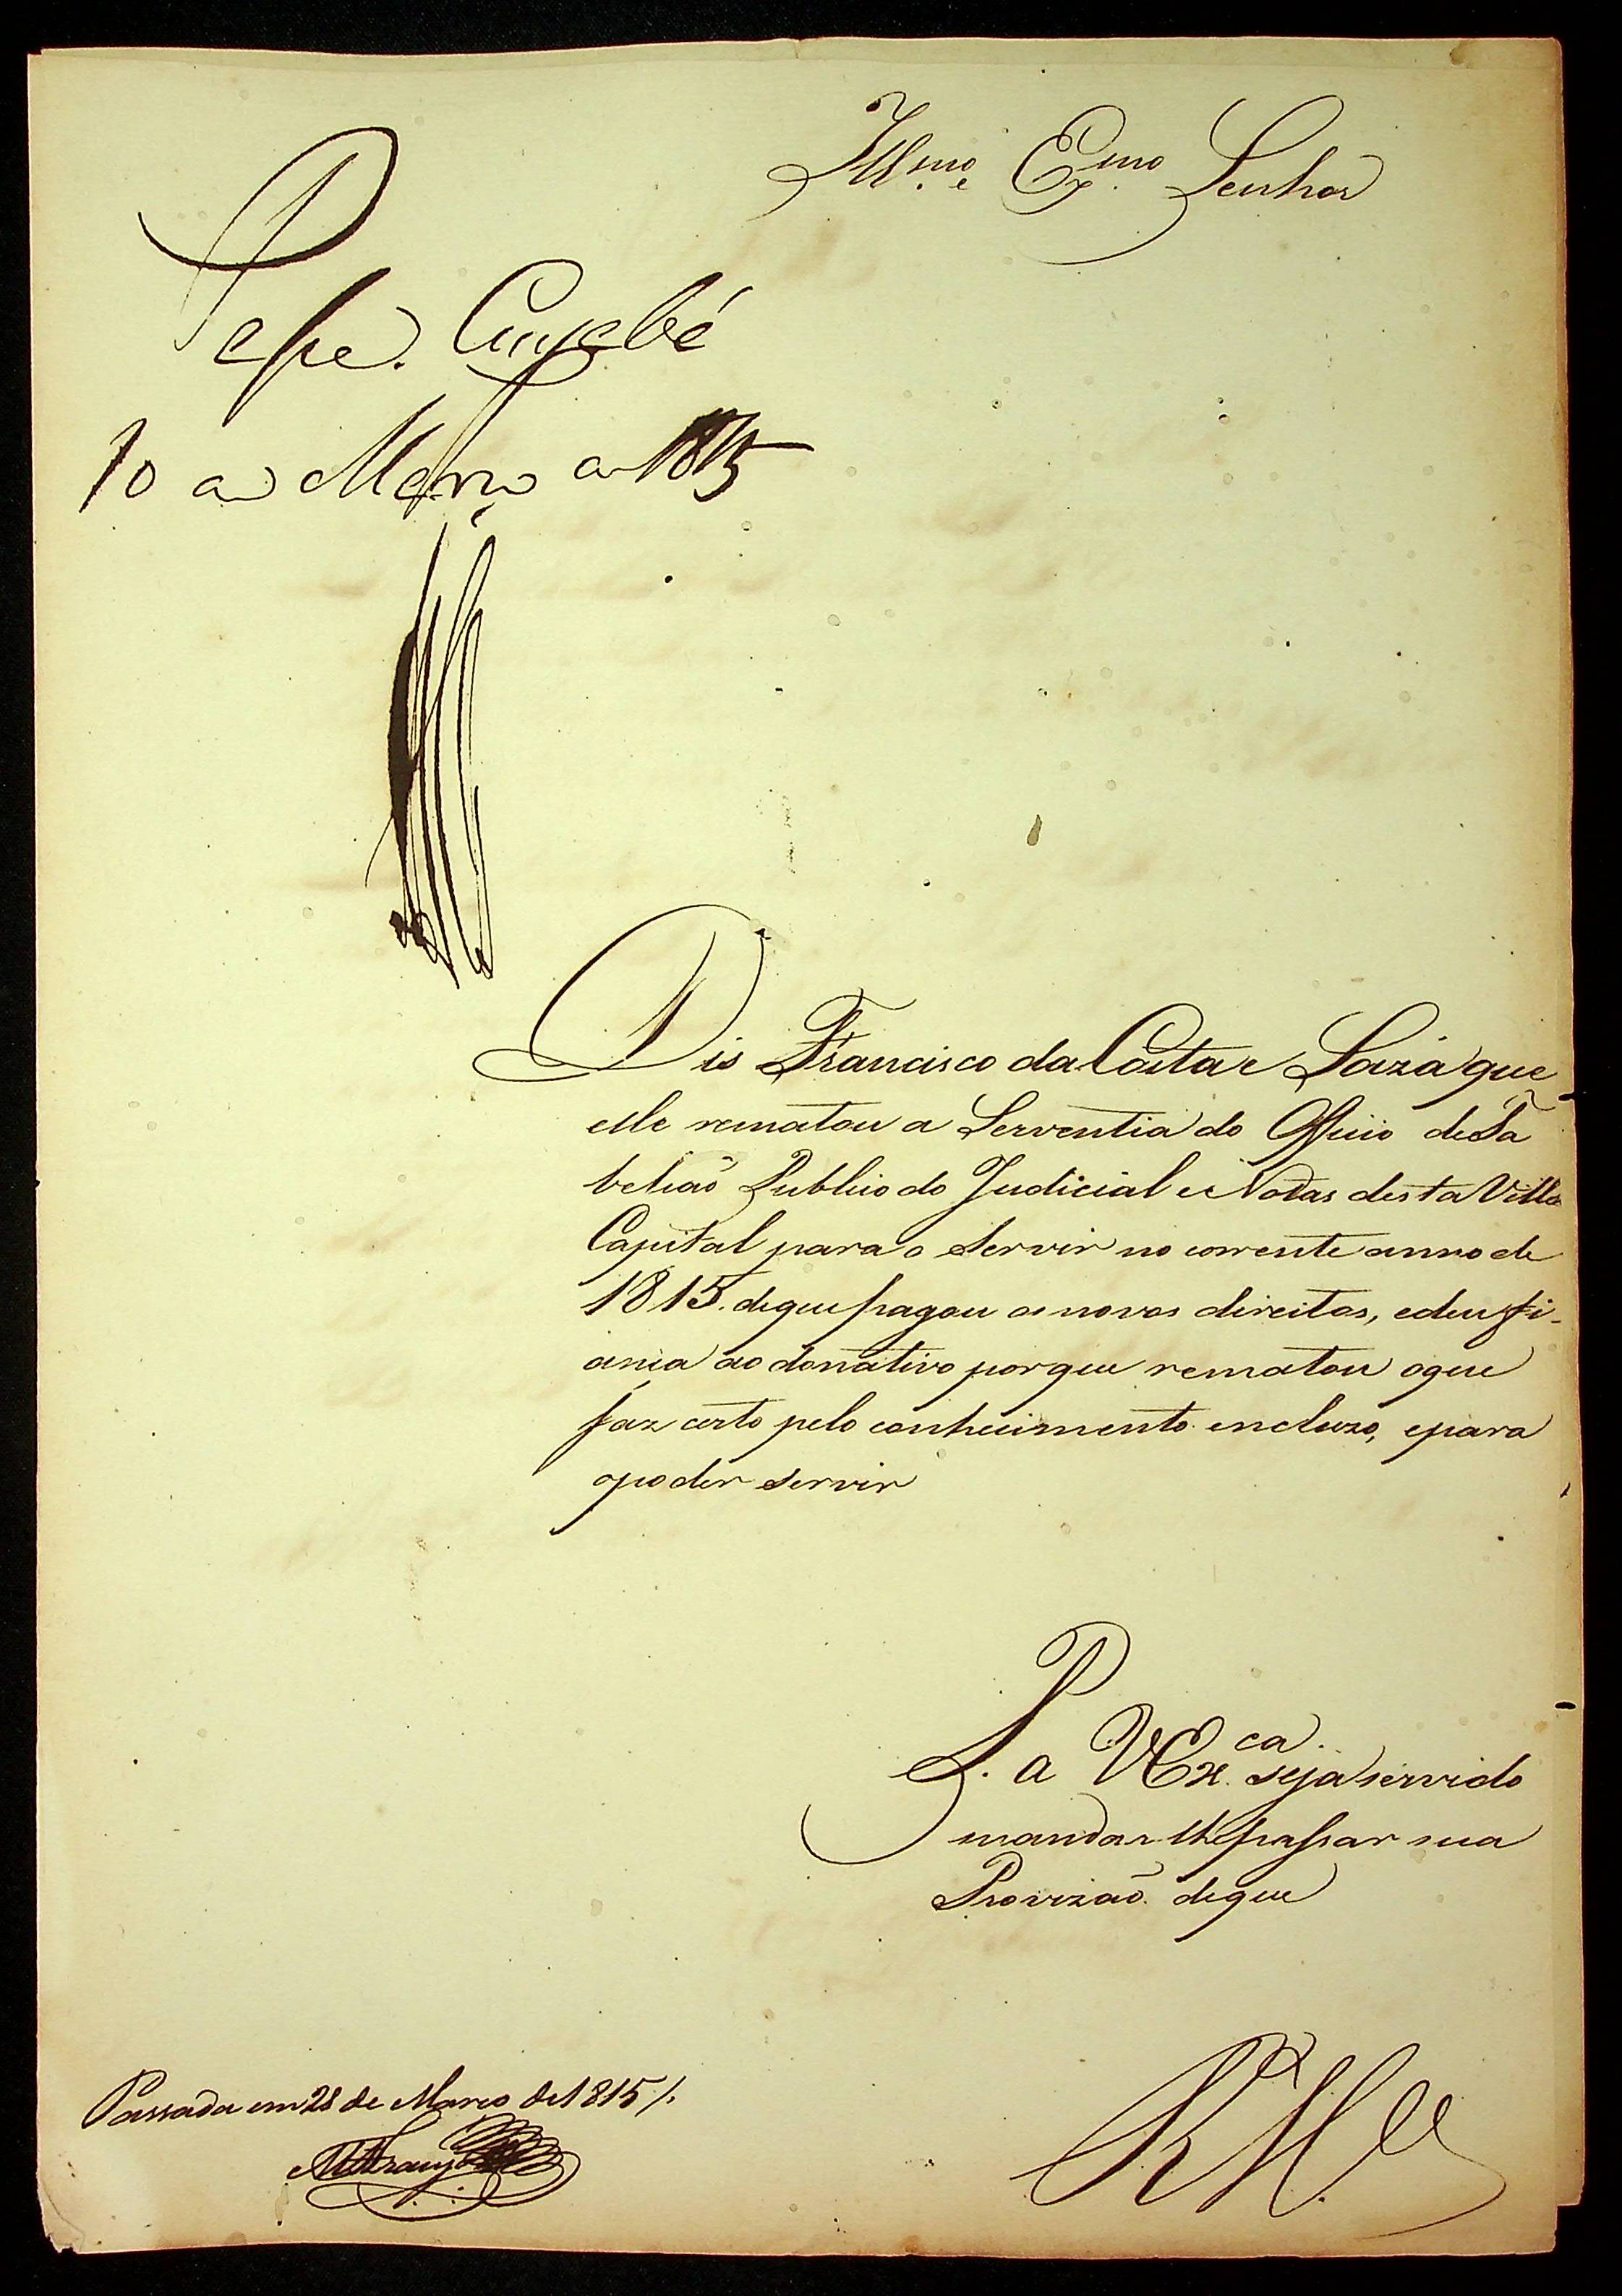 Illmo. e Exmo. Senhor
Passe. Cuyabá
10 de Março de 1815
Dis Francisco da Costa e Souza que
elle rematou a Serventia do Officio de Ta
beliaõ Publico do Judicial e Notas desta Villa
Capital para o servir no corrente anno de
1815. de que pagou os novos direitos, e deu fi-
ança ao donativo por que rematou o que
faz certo pelo conhecimento incluzo, e para
o poder servir
P. a V Exca. seja servido
mandar lhe passar sua
Provizaõ. de que
R M.ce
Passada em 28 de Março de 1815 /.